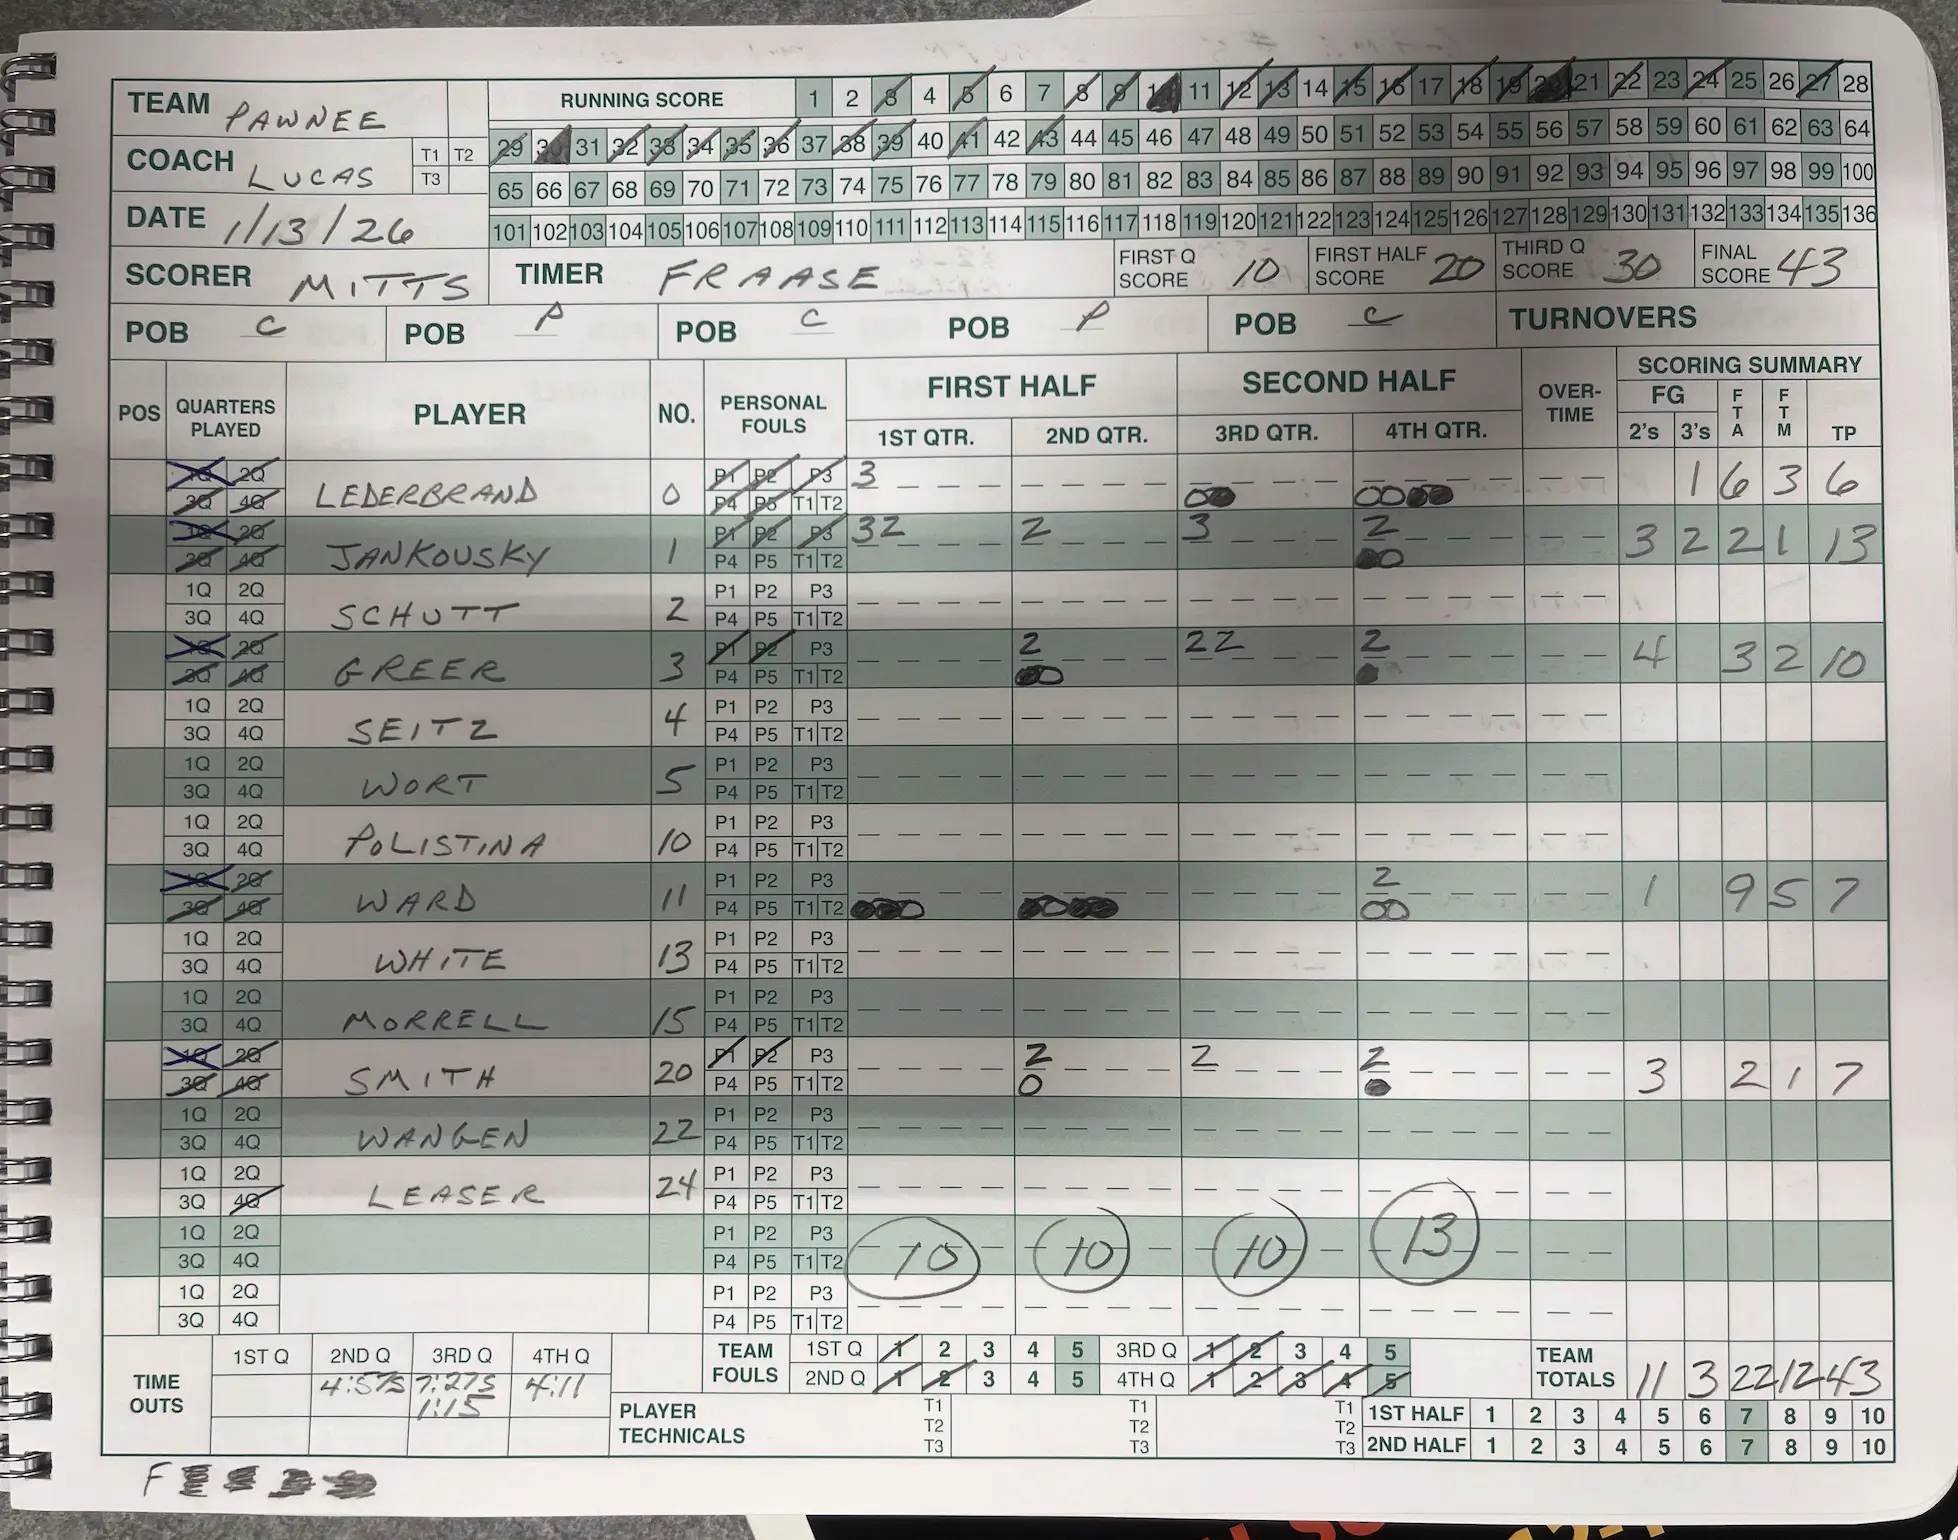 TEAM PAWNEE RUNNING SCORE 1 2 3 4 5 6 7 8 9 10 11 12 13 14 15 16 17 18 19 20 21 22 23 24 25 26 27 28
29 30 31 32 33 34 35 36 37 38 39 40 41 42 43 44 45 46 47 48 49 50 51 52 53 54 55 56 57 58 59 60 61 62 63 64
COACH LUCAS T1 T2 T3
65 66 67 68 69 70 71 72 73 74 75 76 77 78 79 80 81 82 83 84 85 86 87 88 89 90 91 92 93 94 95 96 97 98 99 100
DATE 1/13/26
101 102 103 104 105 106 107 108 109 110 111 112 113 114 115 116 117 118 119 120 121 122 123 124 125 126 127 128 129 130 131 132 133 134 135 136
SCORER MITTS TIMER FRAASE FIRST Q SCORE 10 FIRST HALF SCORE 20 THIRD Q SCORE 30 FINAL SCORE 43
POB C POB P POB C POB P POB C TURNOVERS
POS QUARTERS PLAYED PLAYER NO. PERSONAL FOULS FIRST HALF SECOND HALF OVER-TIME SCORING SUMMARY
1ST QTR. 2ND QTR. 3RD QTR. 4TH QTR. FG 2's 3's FTA FTM TP
1Q 2Q LEDERBRAND 0 P1 P2 P3 3 1 6 3 6
3Q 4Q P4 P5 T1 T2
1Q 2Q JANKOUSKY 1 P1 P2 P3 32 2 3 2 3 2 2 1 13
3Q 4Q P4 P5 T1 T2
1Q 2Q SCHUTT 2 P1 P2 P3
3Q 4Q P4 P5 T1 T2
1Q 2Q GREER 3 P1 P2 P3 2 22 2 4 3 2 10
3Q 4Q P4 P5 T1 T2
1Q 2Q SEITZ 4 P1 P2 P3
3Q 4Q P4 P5 T1 T2
1Q 2Q WORT 5 P1 P2 P3
3Q 4Q P4 P5 T1 T2
1Q 2Q POLISTINA 10 P1 P2 P3
3Q 4Q P4 P5 T1 T2
1Q 2Q WARD 11 P1 P2 P3 2 1 9 5 7
3Q 4Q P4 P5 T1 T2
1Q 2Q WHITE 13 P1 P2 P3
3Q 4Q P4 P5 T1 T2
1Q 2Q MORRELL 15 P1 P2 P3
3Q 4Q P4 P5 T1 T2
1Q 2Q SMITH 20 P1 P2 P3 2 2 2 3 2 1 7
3Q 4Q P4 P5 T1 T2
1Q 2Q WANGEN 22 P1 P2 P3
3Q 4Q P4 P5 T1 T2
1Q 2Q LEASER 24 P1 P2 P3
3Q 4Q P4 P5 T1 T2
1Q 2Q P1 P2 P3 10 10 10 13
3Q 4Q P4 P5 T1 T2
1Q 2Q P1 P2 P3
3Q 4Q P4 P5 T1 T2
TIME OUTS 1ST Q 2ND Q 3RD Q 4TH Q TEAM FOULS 1ST Q 1 2 3 4 5 3RD Q 1 2 3 4 5 TEAM TOTALS 11 3 22 12 43
4:57S 7:27S 4:11 2ND Q 1 2 3 4 5 4TH Q 1 2 3 4 5
1:15
PLAYER TECHNICALS T1 T2 T3 T1 T2 T3 T1 T2 T3 1ST HALF 1 2 3 4 5 6 7 8 9 10
2ND HALF 1 2 3 4 5 6 7 8 9 10
F